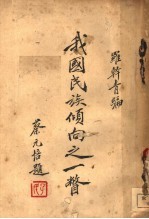 羅幹青編
我國民族傾向之一瞥
蔡元培題